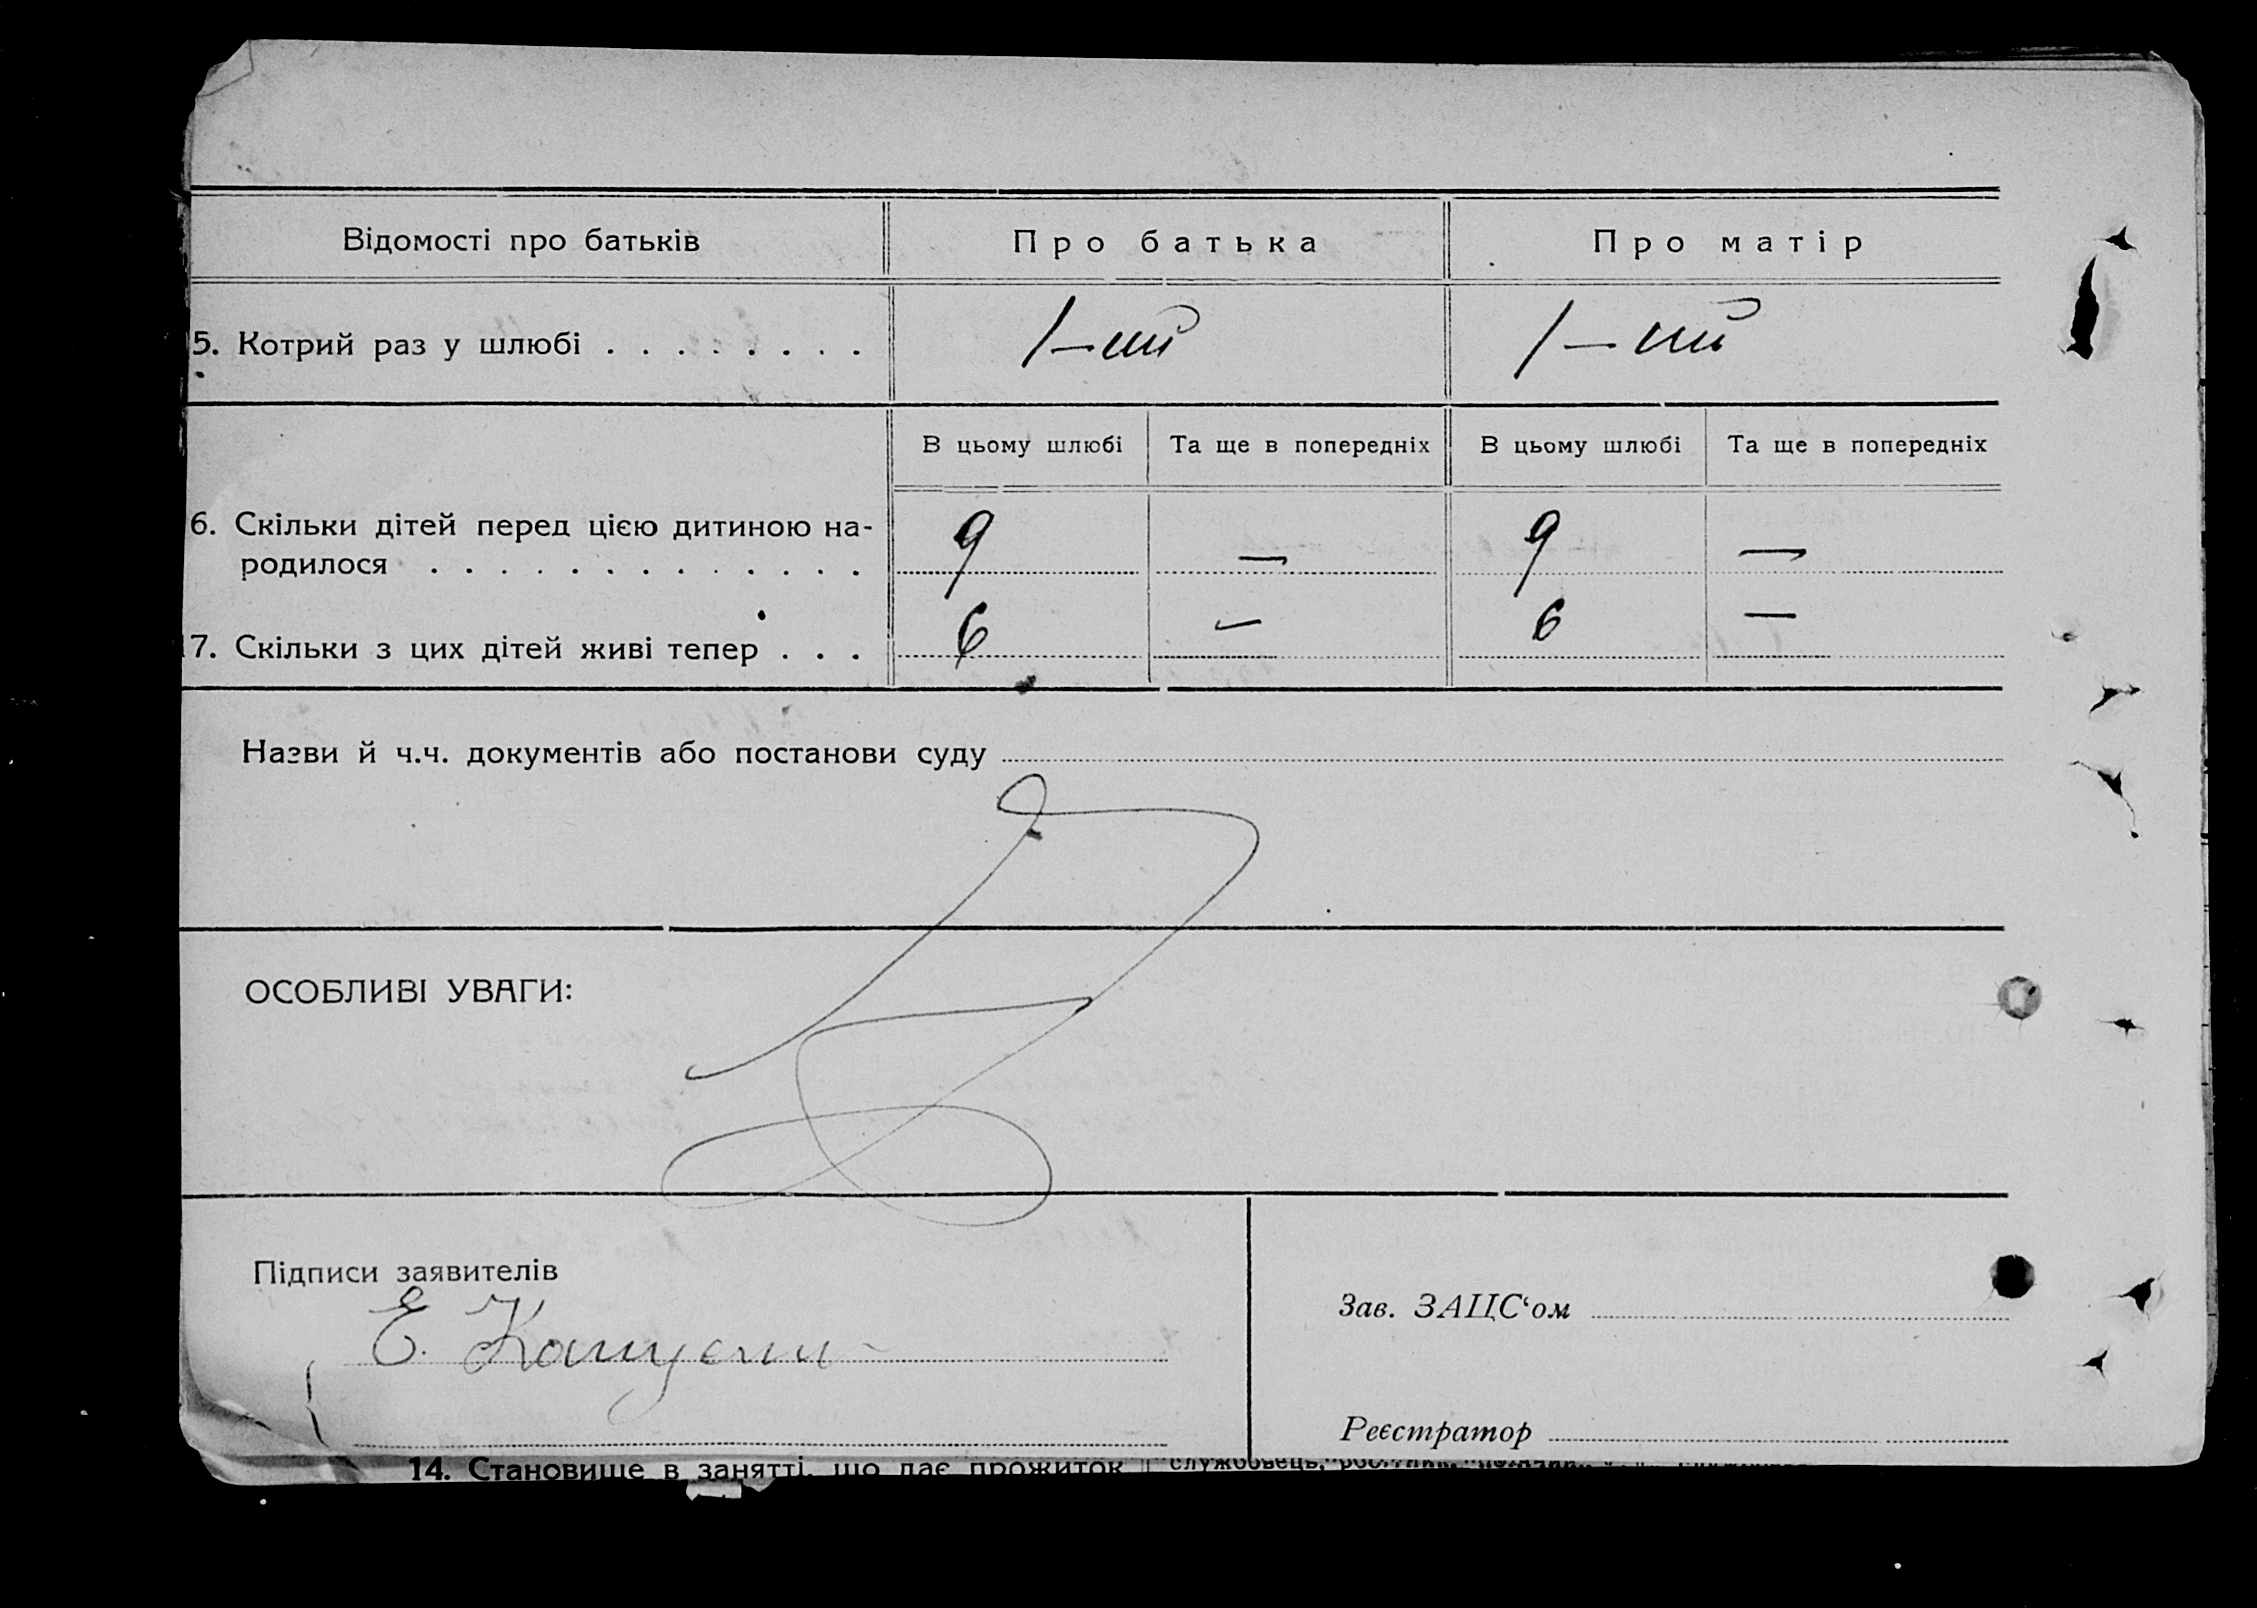 Відомості про батьків Про батька Про матір
5. Котрий раз у шлюбі . . . . . . . . 1-ий 1-ий
В цьому шлюбі Та ще в попередніх В цьому шлюбі Та ще в попередніх
6. Скільки дітей перед цією дитиною на-
родилося . . . . . . . . . . . . . 9 — 9 —
17. Скільки з цих дітей живі тепер . . . 6 — 6 —
Назви й ч.ч. документів або постанови суду
ОСОБЛИВІ УВАГИ:
Підписи заявителів
Е.
Зав. ЗАЦС‘ом
Реєстратор
14. Становище в занятті, що дає прожиток